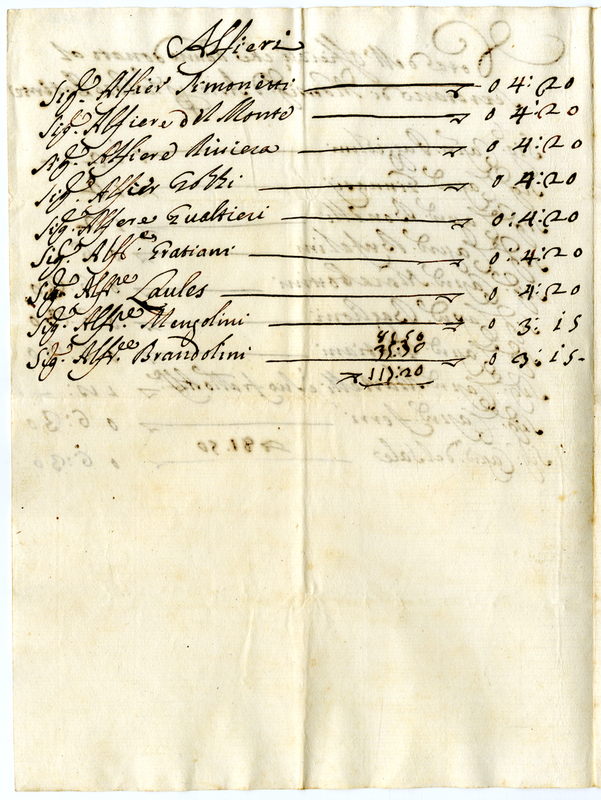 Alfieri
Sig.r Alfier Simonetti 0 4:20
Sig.r Alfiere del Monte 0 4:20
Sig.r Alfiere Riviera 0 4:20
Sig.r Alfier Gozzi 0 4:20
Sig.r Alfiere Gualtieri 0:4:20
Sig.r Alf.e Gratiani 0:4:20
Sig.r Alf.re Laules 0 4:20
Sig.r Alf.re Mengolini 0 3:15
Sig.r Alf.re Brandolini 0 3:15
81.50
35:50
117:20